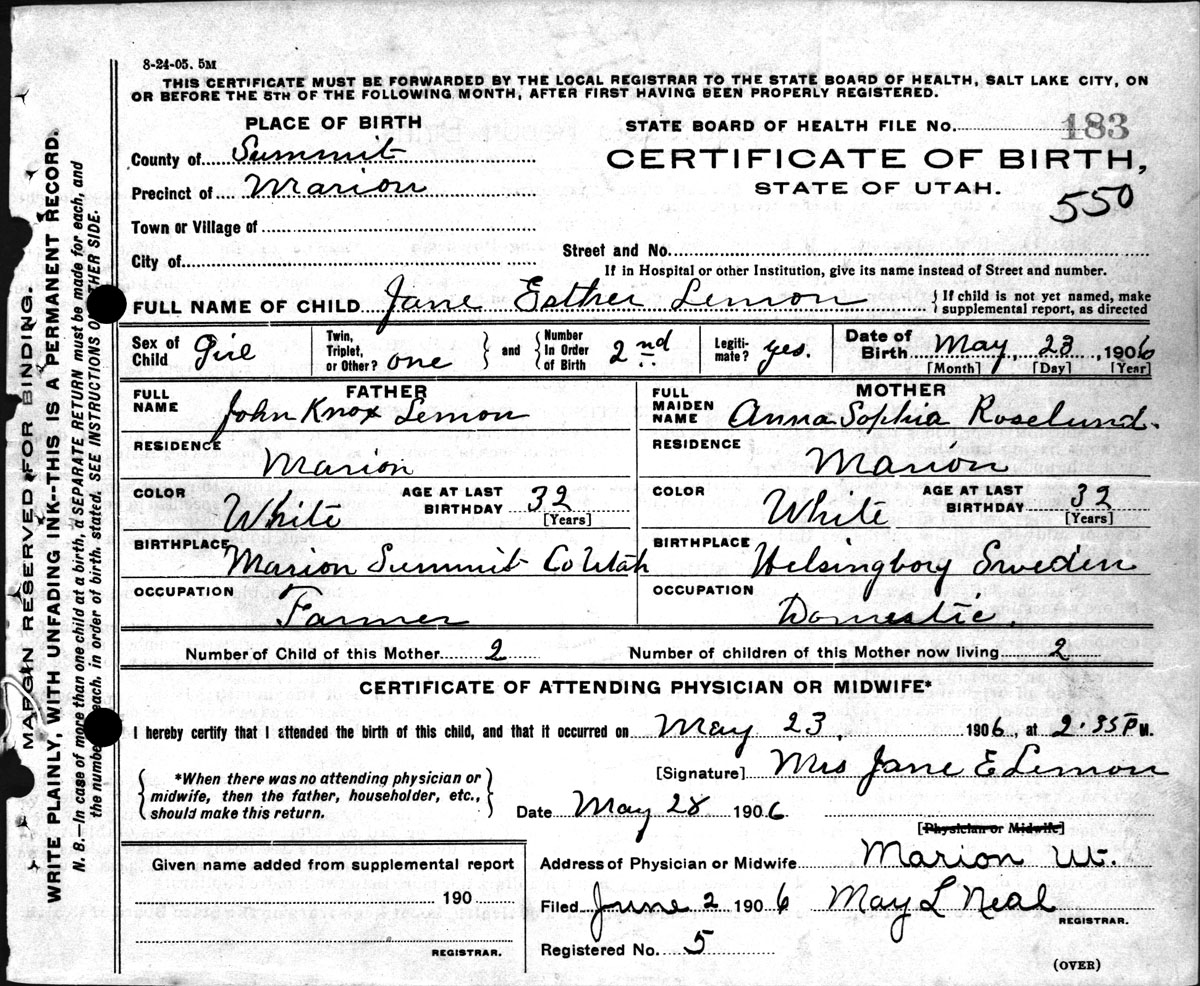 8-24-05. 5M
THIS CERTIFICATE MUST BE FORWARDED BY THE LOCAL REGISTRAR TO THE STATE BOARD OF HEALTH, SALT LAKE CITY, ON
OR BEFORE THE 5TH OF THE FOLLOWING MONTH, AFTER FIRST HAVING BEEN PROPERLY REGISTERED.
PLACE OF BIRTH
STATE BOARD OF HEALTH FILE No. 183
County of Summit
CERTIFICATE OF BIRTH,
Precinct of Marion
STATE OF UTAH.
550
Town or Village of
City of
Street and No.
If in Hospital or other Institution, give its name instead of Street and number.
FULL NAME OF CHILD Jane Esther Lemon
If child is not yet named, make
supplemental report, as directed
Sex of Child Girl
Twin, Triplet, or Other? one
and
Number In Order of Birth 2nd
Legiti-mate? yes.
Date of Birth May, 23, 1906
[Month] [Day] [Year]
FATHER
FULL NAME John Knox Lemon
RESIDENCE Marion
COLOR White
AGE AT LAST BIRTHDAY 32
[Years]
BIRTHPLACE Marion Summit Co Utah
OCCUPATION Farmer
MOTHER
FULL MAIDEN NAME Anna Sophia Roselund.
RESIDENCE Marion
COLOR White
AGE AT LAST BIRTHDAY 32
[Years]
BIRTHPLACE Helsingborg Sweden
OCCUPATION Domestic.
Number of Child of this Mother 2
Number of children of this Mother now living 2
CERTIFICATE OF ATTENDING PHYSICIAN OR MIDWIFE*
I hereby certify that I attended the birth of this child, and that it occurred on May 23, 1906, at 2.35 P M.
*When there was no attending physician or
midwife, then the father, householder, etc.,
should make this return.
[Signature] Mrs Jane E Lemon
Date May 28 1906
[Physician or Midwife]
Given name added from supplemental report
190
REGISTRAR.
Address of Physician or Midwife Marion Ut.
Filed June 2 1906 May L Neal
REGISTRAR.
Registered No. 5
(OVER)
MARGIN RESERVED FOR BINDING.
WRITE PLAINLY, WITH UNFADING INK--THIS IS A PERMANENT RECORD.
N. B.—In case of more than one child at a birth, a SEPARATE RETURN must be made for each, and
the number each, in order of birth, stated. SEE INSTRUCTIONS ON OTHER SIDE.